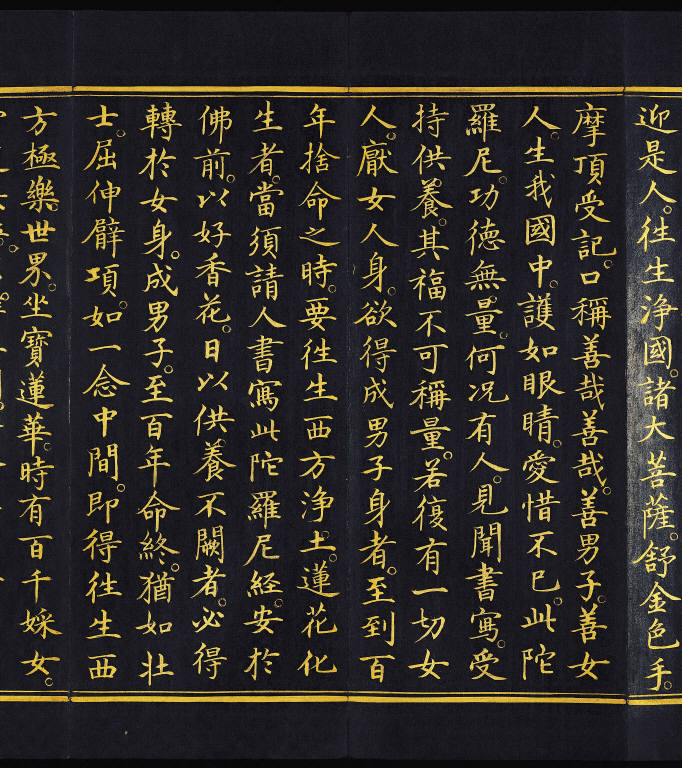 迎是人。徃生浄國。諸大菩薩。舒金色手。
摩頂受記。口稱善哉善哉。善男子。善女
人。生我國中。護如眼睛。愛惜不已。此陀
羅尼。功德無量。何況有人。見聞書寫。受
持供養。其福不可稱量。若復有一切女
人。厭女人身。欲得成男子身者。至到百
年捨命之時。要徃生西方浄土。蓮花化
生者。當須請人書寫此陀羅尼經。安於
佛前。以好香花。日以供養不闕者。必得
轉於女身。成男子。至百年命終。猶如壯
士。屈伸臂項。如一念中間。即得徃生西
方極樂世界。坐寶蓮華。時有百千婇女。